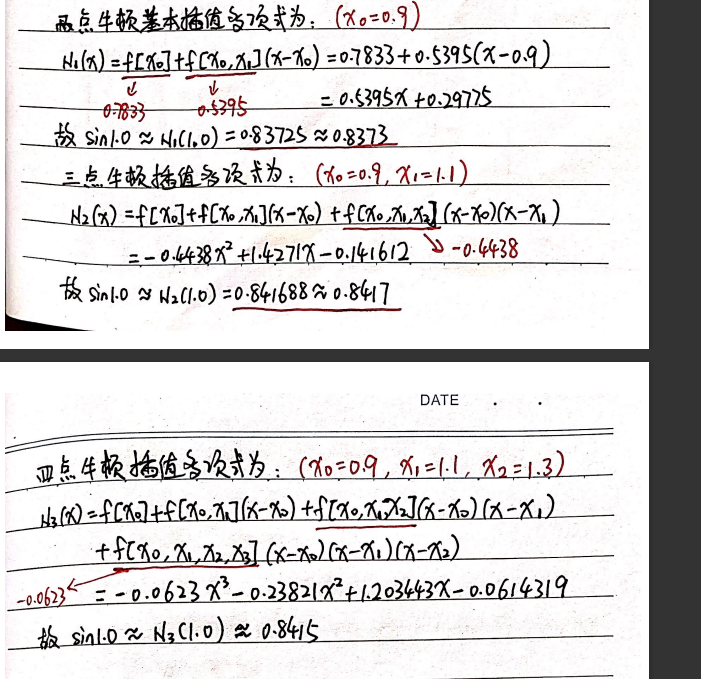 两点牛顿基本插值多项式为：(x₀=0.9)
N₁(x)=f[x₀]+f[x₀,x₁](x-x₀)=0.7833+0.5395(x-0.9)
0.7833 0.5395 =0.5395x+0.29775
故 sin1.0≈N₁(1.0)=0.83725≈0.8373
三点牛顿插值多项式为：(x₀=0.9, x₁=1.1)
N₂(x)=f[x₀]+f[x₀,x₁](x-x₀)+f[x₀,x₁,x₂](x-x₀)(x-x₁)
=-0.4438x²+1.4271x-0.141612 -0.4438
故 sin1.0≈N₂(1.0)=0.841688≈0.8417
DATE . .
四点牛顿插值多项式为：(x₀=0.9, x₁=1.1, x₂=1.3)
N₃(x)=f[x₀]+f[x₀,x₁](x-x₀)+f[x₀,x₁,x₂](x-x₀)(x-x₁)
+f[x₀,x₁,x₂,x₃](x-x₀)(x-x₁)(x-x₂)
-0.0623 =-0.0623x³-0.23821x²+1.203443x-0.0614319
故 sin1.0≈N₃(1.0)≈0.8415